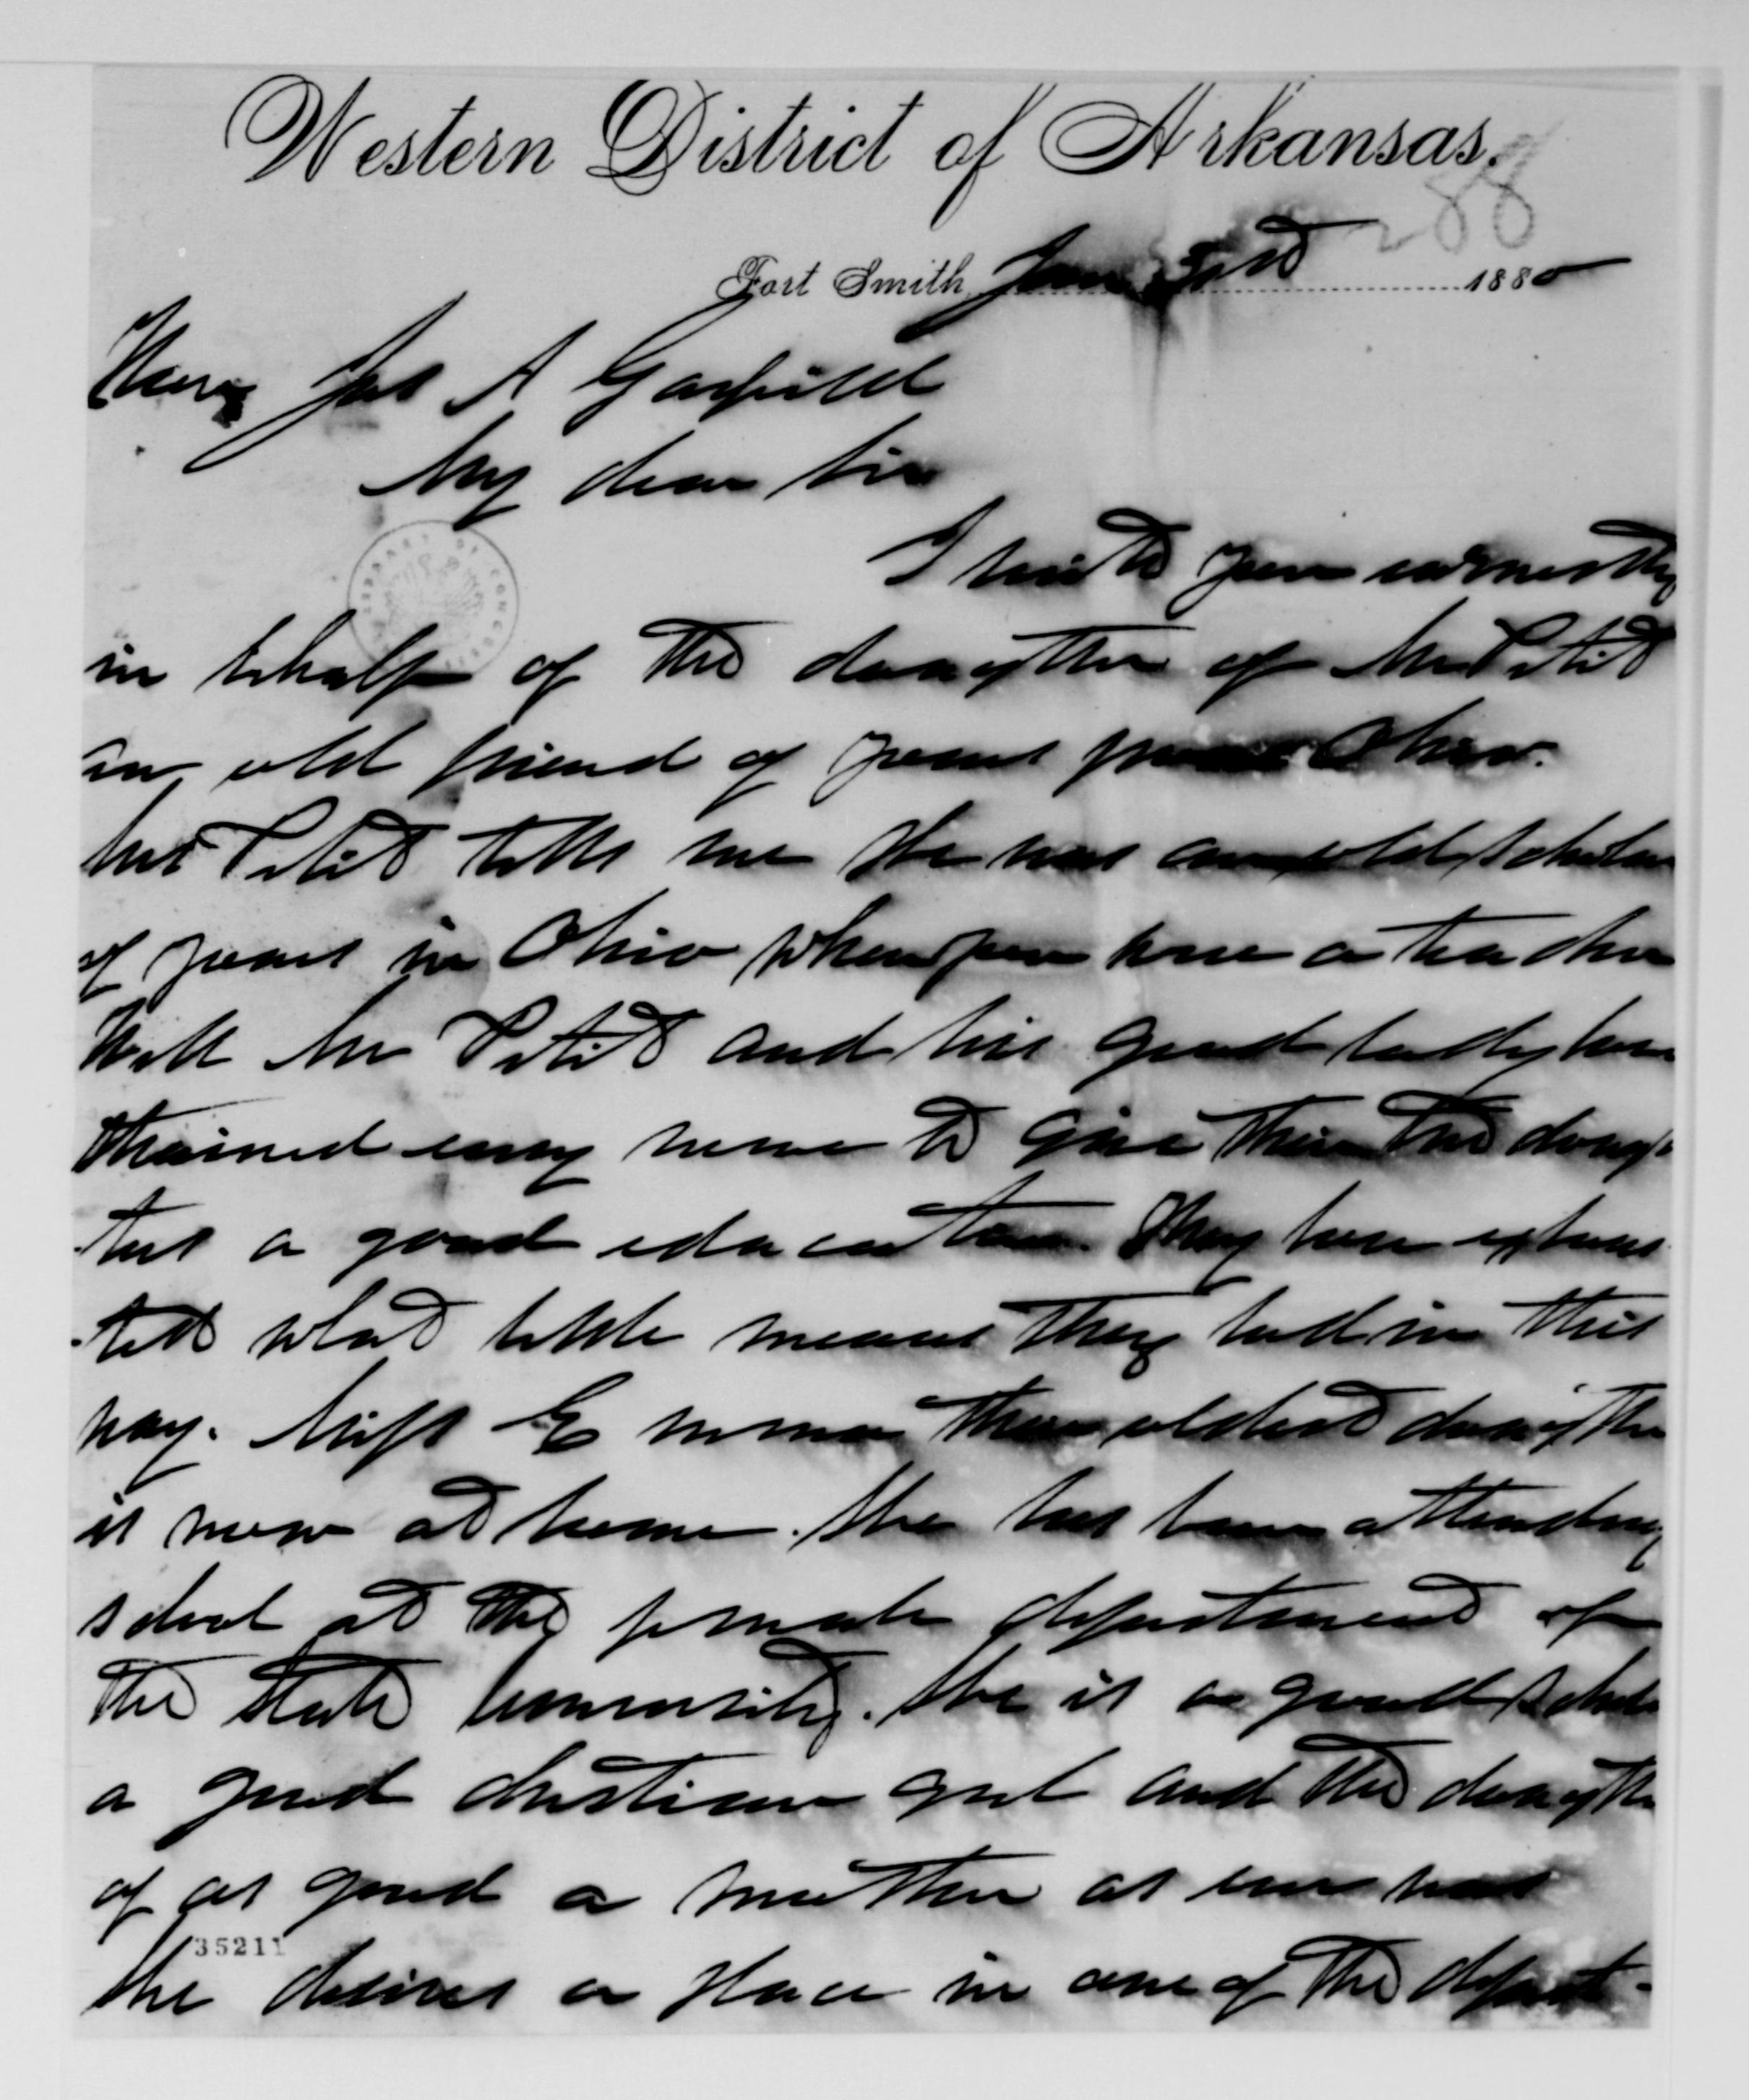 Western District of Arkansas.
288
Fort Smith, Jan 1880
Hon Jas A Garfield
My dear Sir
I write you earnestly
in behalf of the daughter of Mr Petit
an old friend of yours from Ohio.
Mrs Petit tells me she was an old scholar
of yours in Ohio when you were a teacher
Well Mr Petit and his good lady have
strained every nerve to give their two daugh
-ters a good education. They have exhaus
-ted what little means they had in this
way. Miss Emma their oldest daughter
is now at home. She has been attending
school at the female department of
the State University. She is a good scholar
a good christian girl and the daughter
of as good a mother as ever was
35211
She desires a place in one of the depart-